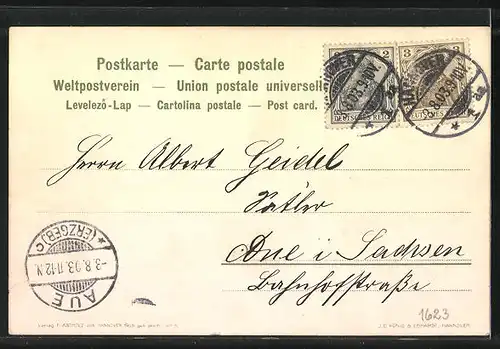 Postkarte — Carte postale
Weltpostverein — Union postale universelle
Levelező-Lap — Cartolina postale — Post card.
3 3
HANNOVER
8.03.9-10V.
DEUTSCHES REICH
HANNOVER
8.03.9-10V.
DEUTSCHES REICH
* 1 a
* 1 a
Herrn Albert Geidel
Sattler
Aue i Sachsen
Bahnhofstraße
* (ERZGEB) C
-3.8.03.11-12.N.
AUE
1623
HANNOVER